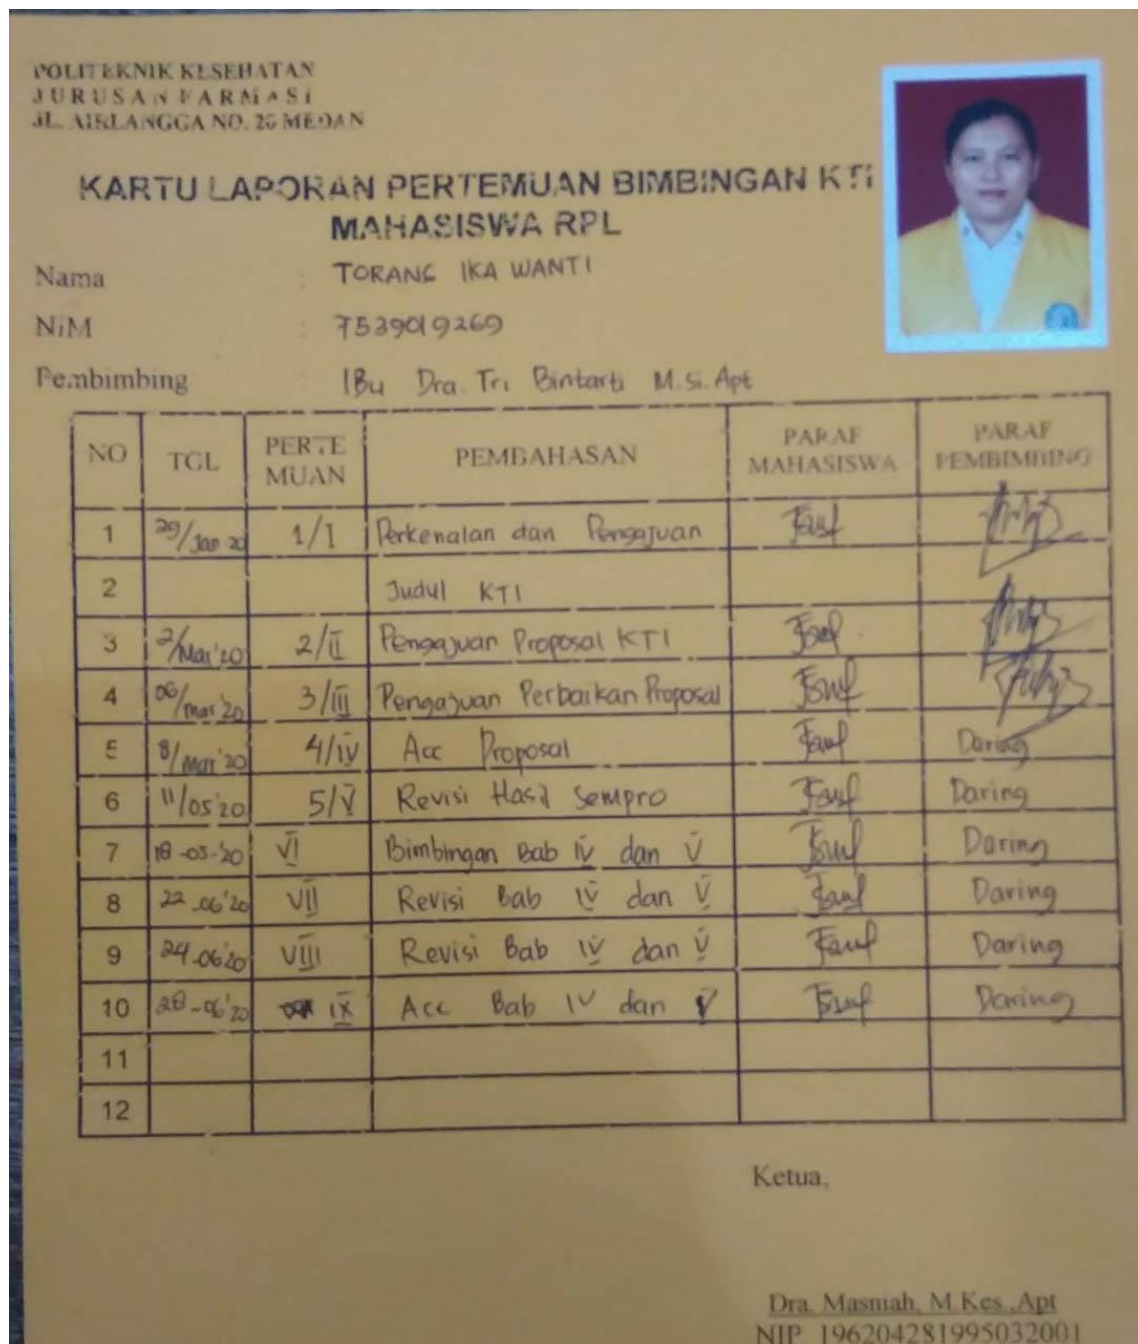 POLITEKNIK KESEHATAN
JURUSAN FARMASI
JL. AIRLANGGA NO. 20 MEDAN
KARTU LAPORAN PERTEMUAN BIMBINGAN KTI
MAHASISWA RPL
Nama : TORANG IKA WANTI
NiM : 7539019269
Pembimbing IBu Dra. Tri Bintarti M.Si.Apt
NO TGL PERTE MUAN PEMBAHASAN PARAF MAHASISWA PARAF PEMBIMBING
1 29/Jan 20 1/I Perkenalan dan Pengajuan
2 Judul KTI
3 2/Mar'20 2/II Pengajuan Proposal KTI
4 06/mar'20 3/III Pengajuan Perbaikan Proposal
5 8/Mar'20 4/IV Acc Proposal Daring
6 11/05'20 5/V Revisi Hasil Sempro Daring
7 18-05-'20 VI Bimbingan Bab IV dan V Daring
8 22-06'20 VII Revisi Bab IV dan V Daring
9 24-06'20 VIII Revisi Bab IV dan V Daring
10 28-06'20 IX Acc Bab IV dan V Daring
11
12
Ketua,
Dra. Masniah, M.Kes.,Apt
NIP. 196204281995032001